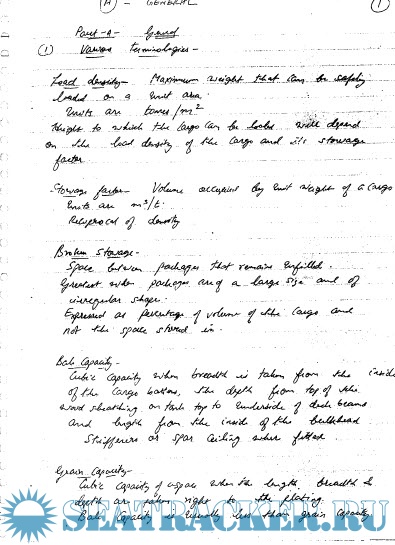 (A) - GENERAL
(1)
Part -A- General
(1) Various terminologies -
Load density - Maximum weight that can be safely
loaded on a unit area.
Units are tonnes/m²
Height to which the cargo can be loaded will depend
on the load density of the cargo and its stowage
factor.
Stowage factor - Volume occupied by unit weight of a cargo
Units are m³/t.
Reciprocal of density
Broken Stowage -
Space between packages that remains unfilled.
Greatest when packages are of a large size and of
irregular shape.
Expressed as percentage of volume of the cargo and
not the space stowed in
Bale Capacity -
Cubic capacity when breadth is taken from the inside
of the cargo battens, the depth from top of the
wood sheathing on tank top to underside of deck beams
and length from the inside of the bulkhead
stiffeners or spar ceiling where fitted.
Grain Capacity -
Cubic capacity of a space when the length, breadth &
depth are taken right to the plating.
Bale capacity usually less than grain capacity
SEATRACKER.RU